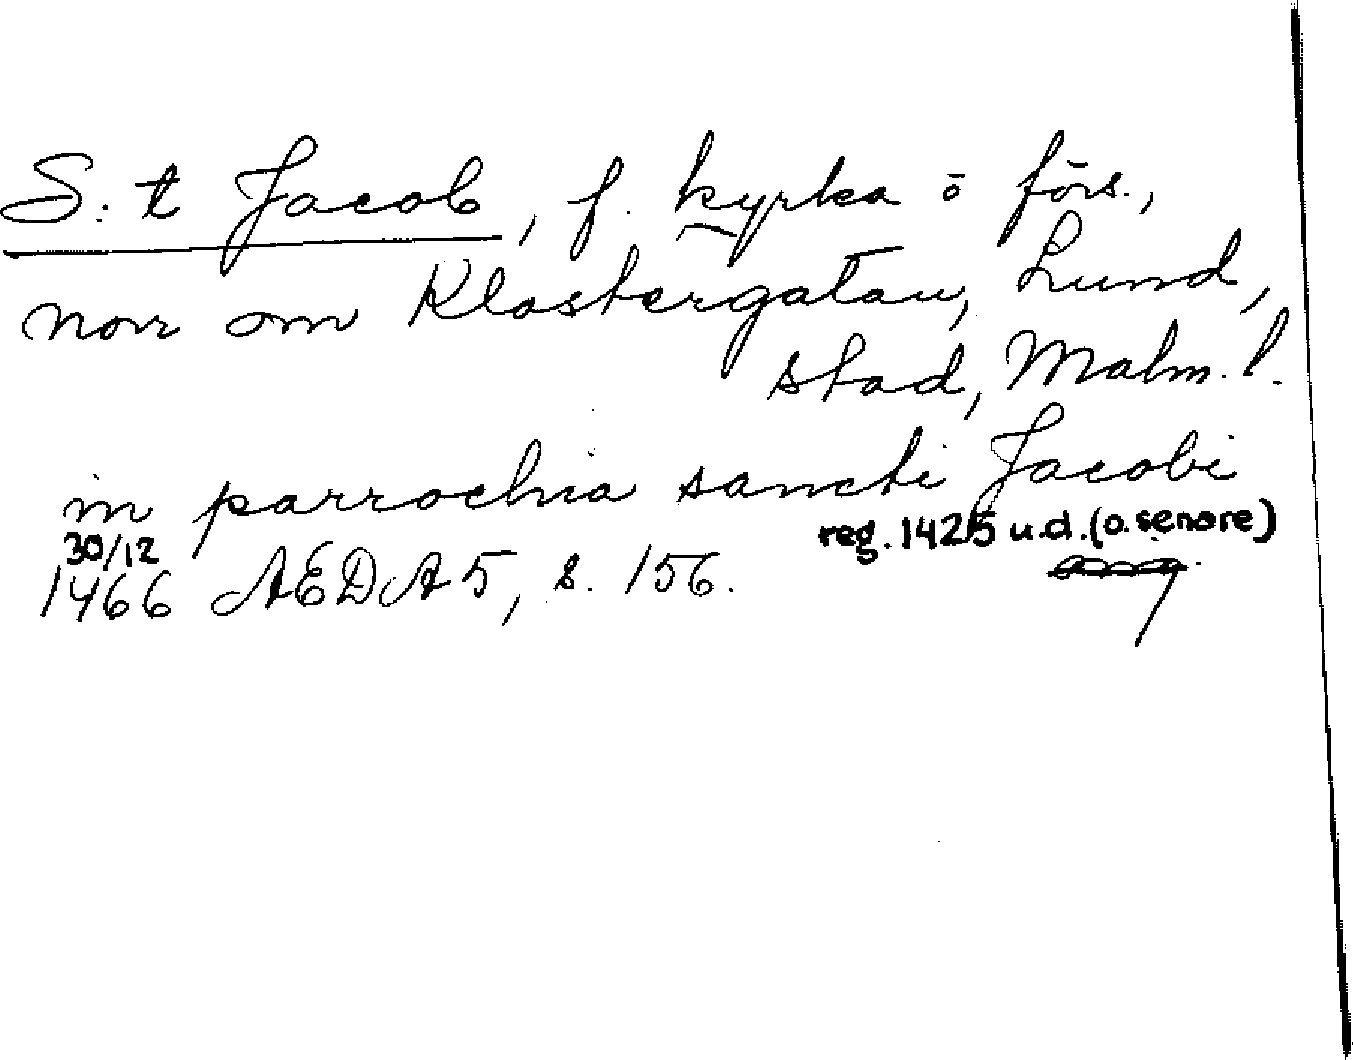 S:t Jacob, f. kyrka o förs.,
norr om Klostergatan, Lund,
stad, Malm. l.
in parrochia sancti Jacobi
reg. 1425 u.d. (o. senare)
30/12
1466 AEDA 5, s. 156.